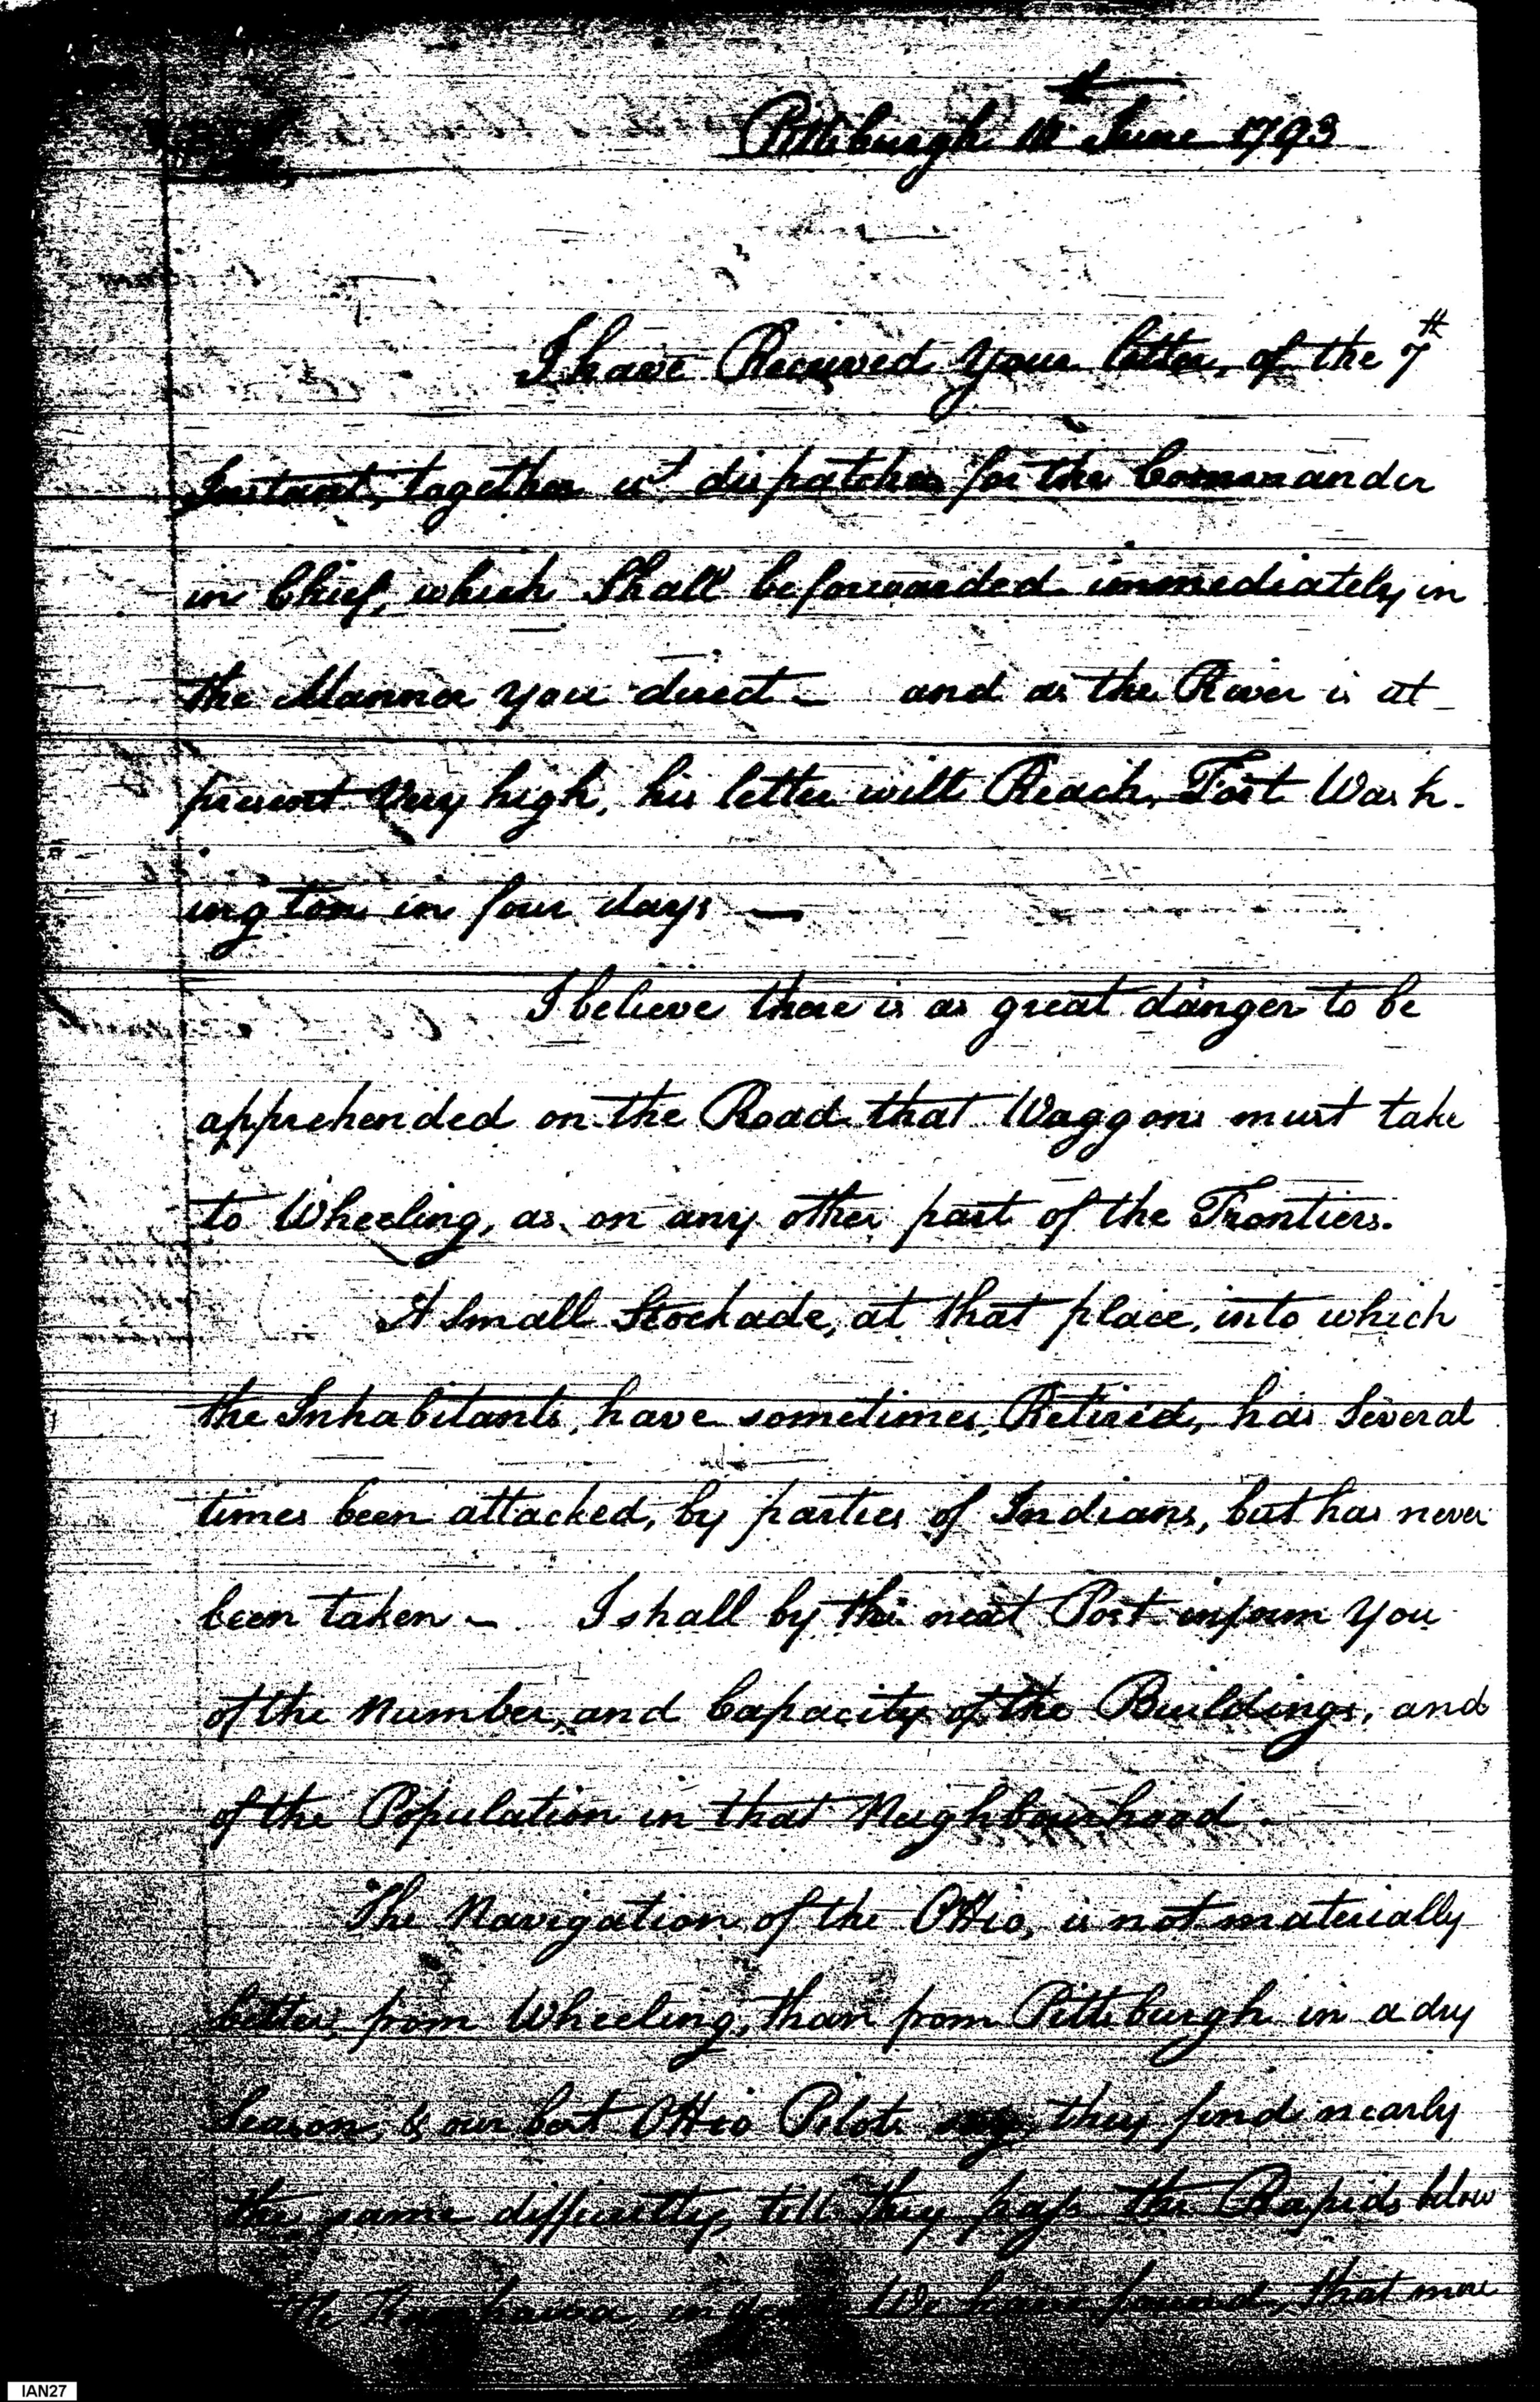 Pittsburgh June 1793
I have Received your letter, of the 7th
Instant, together wt dispatches for the Commander
in Chief, which Shall be forwarded immediately in
the Manner you direct – and as the River is at
present Very high, his letter will Reach, Fort Wash-
ington in four days —
I believe there is as great danger to be
apprehended on the Road that Waggons must take
to Wheeling, as on any other part of the Frontiers.
A Small Stockade, at that place, into which
the Inhabitants, have sometimes, Retired, has Several
times been attacked, by parties of Indians, but has never
been taken – I shall by the next Post inform you
of the Number, and Capacity of the Buildings, and
of the Population in that Neighbourhood.
The Navigation of the Ohio, is not materially
better, from Wheeling, than from Pittsburgh in a dry
Season, & our best Ohio Pilots say, they find nearly
the same difficulty, till they pass the Rapids below
We have found, that more
IAN27